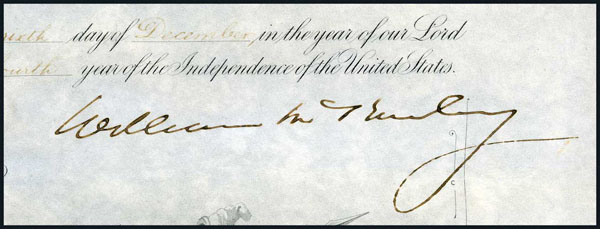 sixth day of December, in the year of our Lord
ourth year of the Independence of the United States.
William McKinley